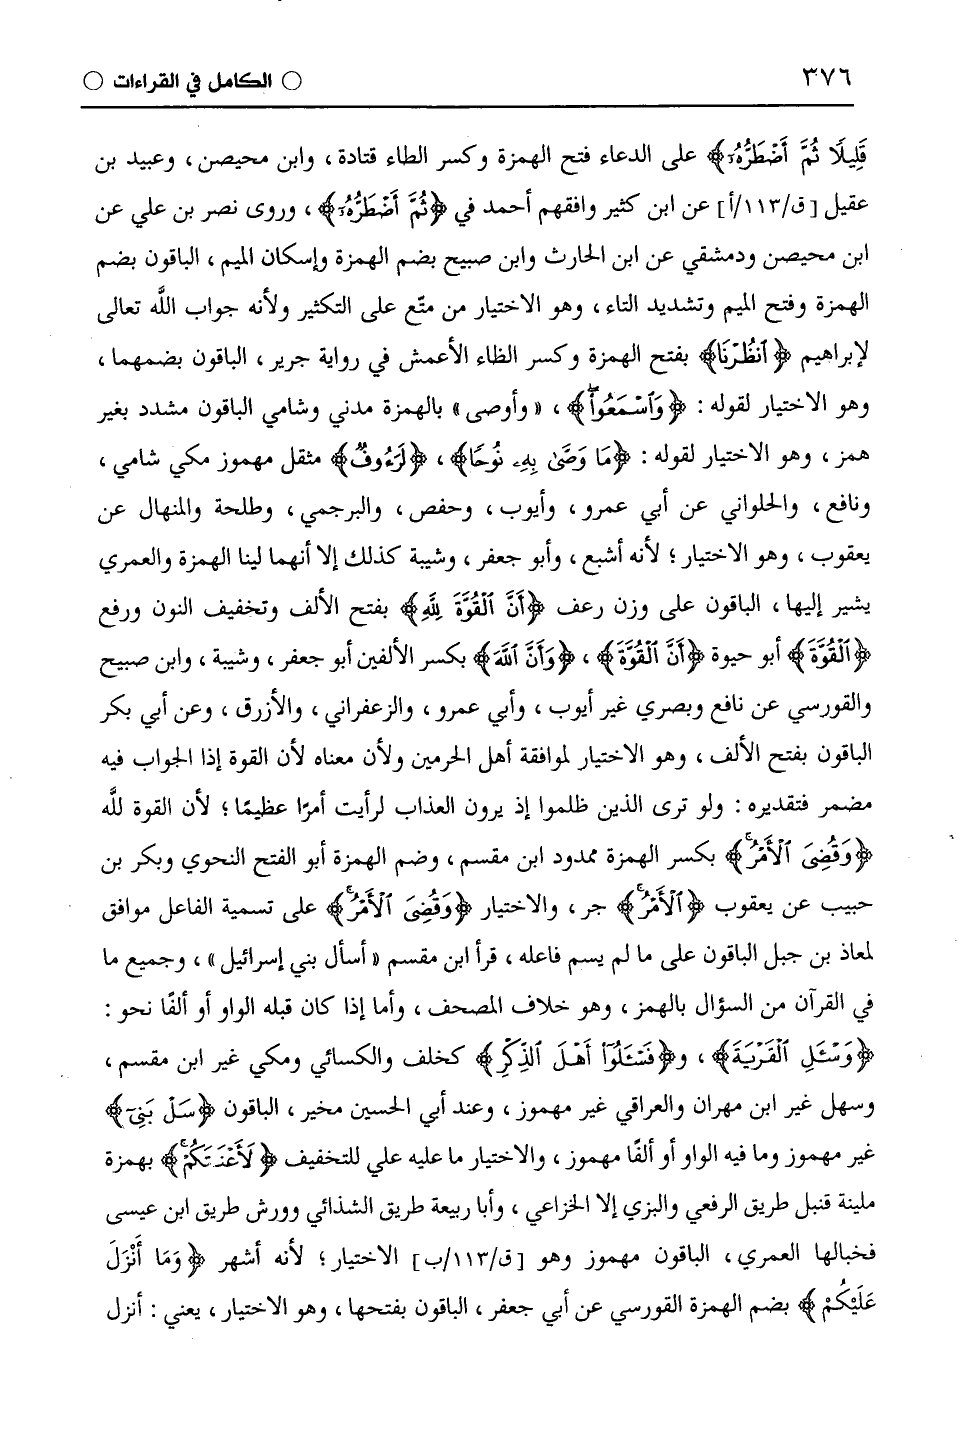 ٣٧٦
○ الكامل في القراءات ○
قَلِيلًا ثُمَّ أَضْطَرُّهُۥٓ﴾ على الدعاء فتح الهمزة وكسر الطاء قتادة، وابن محيصن، وعبيد بن
عقيل [ق/١١٣/أ] عن ابن كثير وافقهم أحمد في ﴿ثُمَّ أَضْطَرُّهُۥٓ﴾، وروى نصر بن علي عن
ابن محيصن ودمشقي عن ابن الحارث وابن صبيح بضم الهمزة وإسكان الميم، الباقون بضم
الهمزة وفتح الميم وتشديد التاء، وهو الاختيار من متّع على التكثير ولأنه جواب اللَّه تعالى
لإبراهيم ﴿ٱنظُرْنَا﴾ بفتح الهمزة وكسر الظاء الأعمش في رواية جرير، الباقون بضمهما،
وهو الاختيار لقوله: ﴿وَٱسْمَعُوا۟ۗ﴾، «وأوصى» بالهمزة مدني وشامي الباقون مشدد بغير
همز، وهو الاختيار لقوله: ﴿مَا وَصَّىٰ بِهِۦ نُوحًا﴾، ﴿لَرَءُوفٌ﴾ مثقل مهموز مكي شامي،
ونافع، والحلواني عن أبي عمرو، وأيوب، وحفص، والبرجمي، وطلحة والمنهال عن
يعقوب، وهو الاختيار؛ لأنه أشبع، وأبو جعفر، وشيبة كذلك إلا أنهما لينا الهمزة والعمري
يشير إليها، الباقون على وزن رعف ﴿أَنَّ ٱلْقُوَّةَ لِلَّهِ﴾ بفتح الألف وتخفيف النون ورفع
﴿ٱلْقُوَّةَ﴾ أبو حيوة ﴿أَنَّ ٱلْقُوَّةَ﴾، ﴿وَأَنَّ ٱللَّهَ﴾ بكسر الألفين أبو جعفر، وشيبة، وابن صبيح
والقورسي عن نافع وبصري غير أيوب، وأبي عمرو، والزعفراني، والأزرق، وعن أبي بكر
الباقون بفتح الألف، وهو الاختيار لموافقة أهل الحرمين ولأن معناه لأن القوة إذا الجواب فيه
مضمر فتقديره: ولو ترى الذين ظلموا إذ يرون العذاب لرأيت أمرًا عظيمًا؛ لأن القوة للَّه
﴿وَقُضِىَ ٱلْأَمْرُۚ﴾ بكسر الهمزة ممدود ابن مقسم، وضم الهمزة أبو الفتح النحوي وبكر بن
حبيب عن يعقوب ﴿ٱلْأَمْرُۚ﴾ جر، والاختيار ﴿وَقُضِىَ ٱلْأَمْرُۚ﴾ على تسمية الفاعل موافق
لمعاذ بن جبل الباقون على ما لم يسم فاعله، قرأ ابن مقسم «أسأل بني إسرائيل»، وجميع ما
في القرآن من السؤال بالهمز، وهو خلاف المصحف، وأما إذا كان قبله الواو أو ألفًا نحو:
﴿وَسْـَٔلِ ٱلْقَرْيَةَ﴾، و﴿فَسْـَٔلُوٓا۟ أَهْلَ ٱلذِّكْرِ﴾ كخلف والكسائي ومكي غير ابن مقسم،
وسهل غير ابن مهران والعراقي غير مهموز، وعند أبي الحسين مخير، الباقون ﴿سَلْ بَنِىٓ﴾
غير مهموز وما فيه الواو أو ألفًا مهموز، والاختيار ما عليه علي للتخفيف ﴿لَأَعْنَتَكُمْۚ﴾ بهمزة
ملينة قنبل طريق الرفعي والبزي إلا الخزاعي، وأبا ربيعة طريق الشذائي وورش طريق ابن عيسى
فخبالها العمري، الباقون مهموز وهو [ق/١١٣/ب] الاختيار؛ لأنه أشهر ﴿وَمَا أَنْزَلَ
عَلَيْكُمْ﴾ بضم الهمزة القورسي عن أبي جعفر، الباقون بفتحها، وهو الاختيار، يعني: أنزل